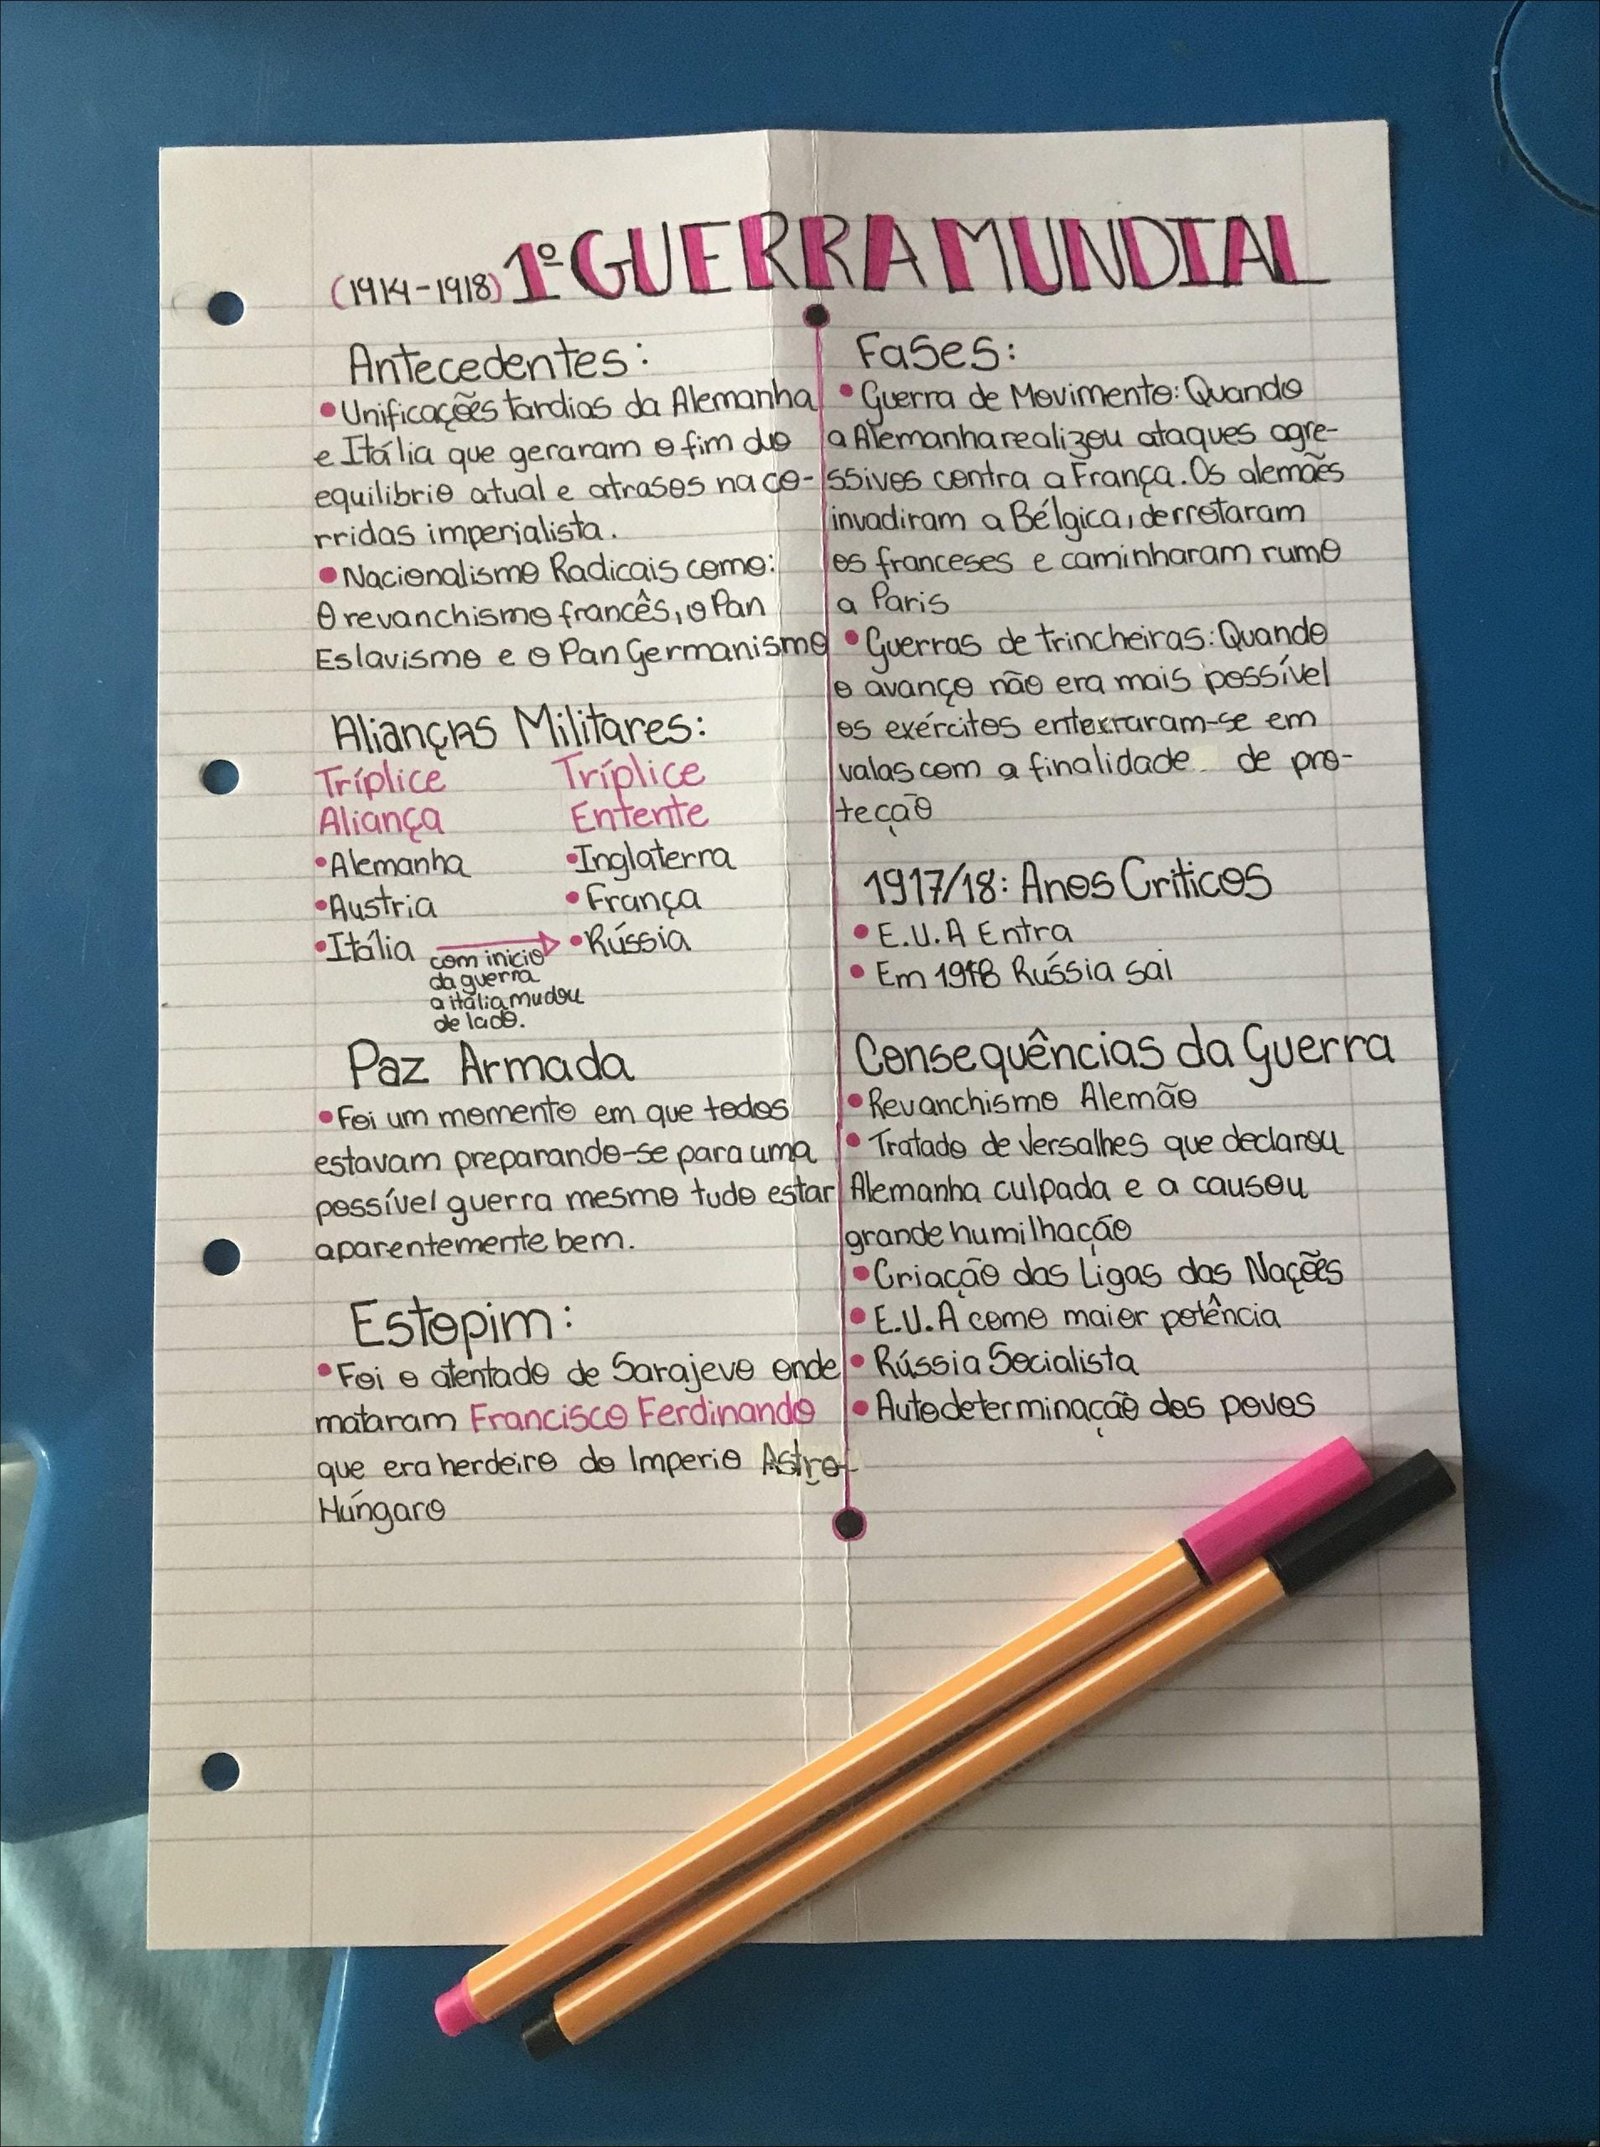 (1914-1918) 1º GUERRA MUNDIAL
Antecedentes:
• Unificações tardias da Alemanha
e Itália que geraram o fim do
equilibrio atual e atrasos na co-
rridas imperialista.
• Nacionalismo Radicais como:
O revanchismo francês, o Pan
Eslavismo e o Pan Germanismo
Alianças Militares:
Tríplice
Aliança
• Alemanha
• Austria
• Itália
com inicio
da guerra
a itália mudou
de lado.
Tríplice
Entente
• Inglaterra
• França
• Rússia
Paz Armada
• Foi um momento em que todos
estavam preparando-se para uma
possível guerra mesmo tudo estar
aparentemente bem.
Estopim:
• Foi o atentado de Sarajevo onde
mataram Francisco Ferdinando
que era herdeiro do Imperio Astro-
Húngaro
Fases:
• Guerra de Movimento: Quando
a Alemanha realizou ataques agre-
ssivos contra a França. Os alemães
invadiram a Bélgica, derrotaram
os franceses e caminharam rumo
a Paris
• Guerras de trincheiras: Quando
o avanço não era mais possível
os exércitos enterraram-se em
valas com a finalidade de pro-
teção
1917/18: Anos Criticos
• E.U.A Entra
• Em 1918 Rússia sai
Consequências da Guerra
• Revanchismo Alemão
• Tratado de Versalhes que declarou
Alemanha culpada e a causou
grande humilhação
• Criação das Ligas das Nações
• E.U.A como maior potência
• Rússia Socialista
• Autodeterminação dos povos